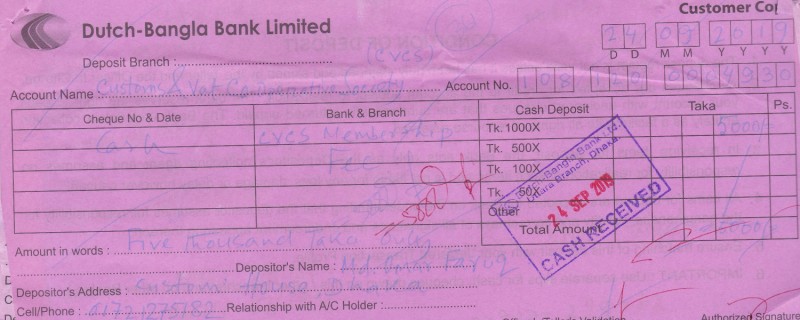 Customer Co
Dutch-Bangla Bank Limited
24 09 2019
D D M M Y Y Y Y
Deposit Branch :
(CVCS)
Account Name : Customs & Vat Co-operative Society Account No. 108 120 0004930
Cheque No & Date Bank & Branch Cash Deposit Taka Ps.
Cash CVCS Membership Tk. 1000X 5000/-
Fee Tk. 500X
Tk. 100X
5000/- Tk. 50X
Other
Total Amount 5000/-
Dutch-Bangla Bank Ltd.
Uttara Branch, Dhaka.
24 SEP 2019
CASH RECEIVED
Amount in words : Five thousand Taka only
Depositor's Name : Md. Omar Faruq
Depositor's Address : Custom House, Dhaka
Cell/Phone : Relationship with A/C Holder :
Authorized Signature